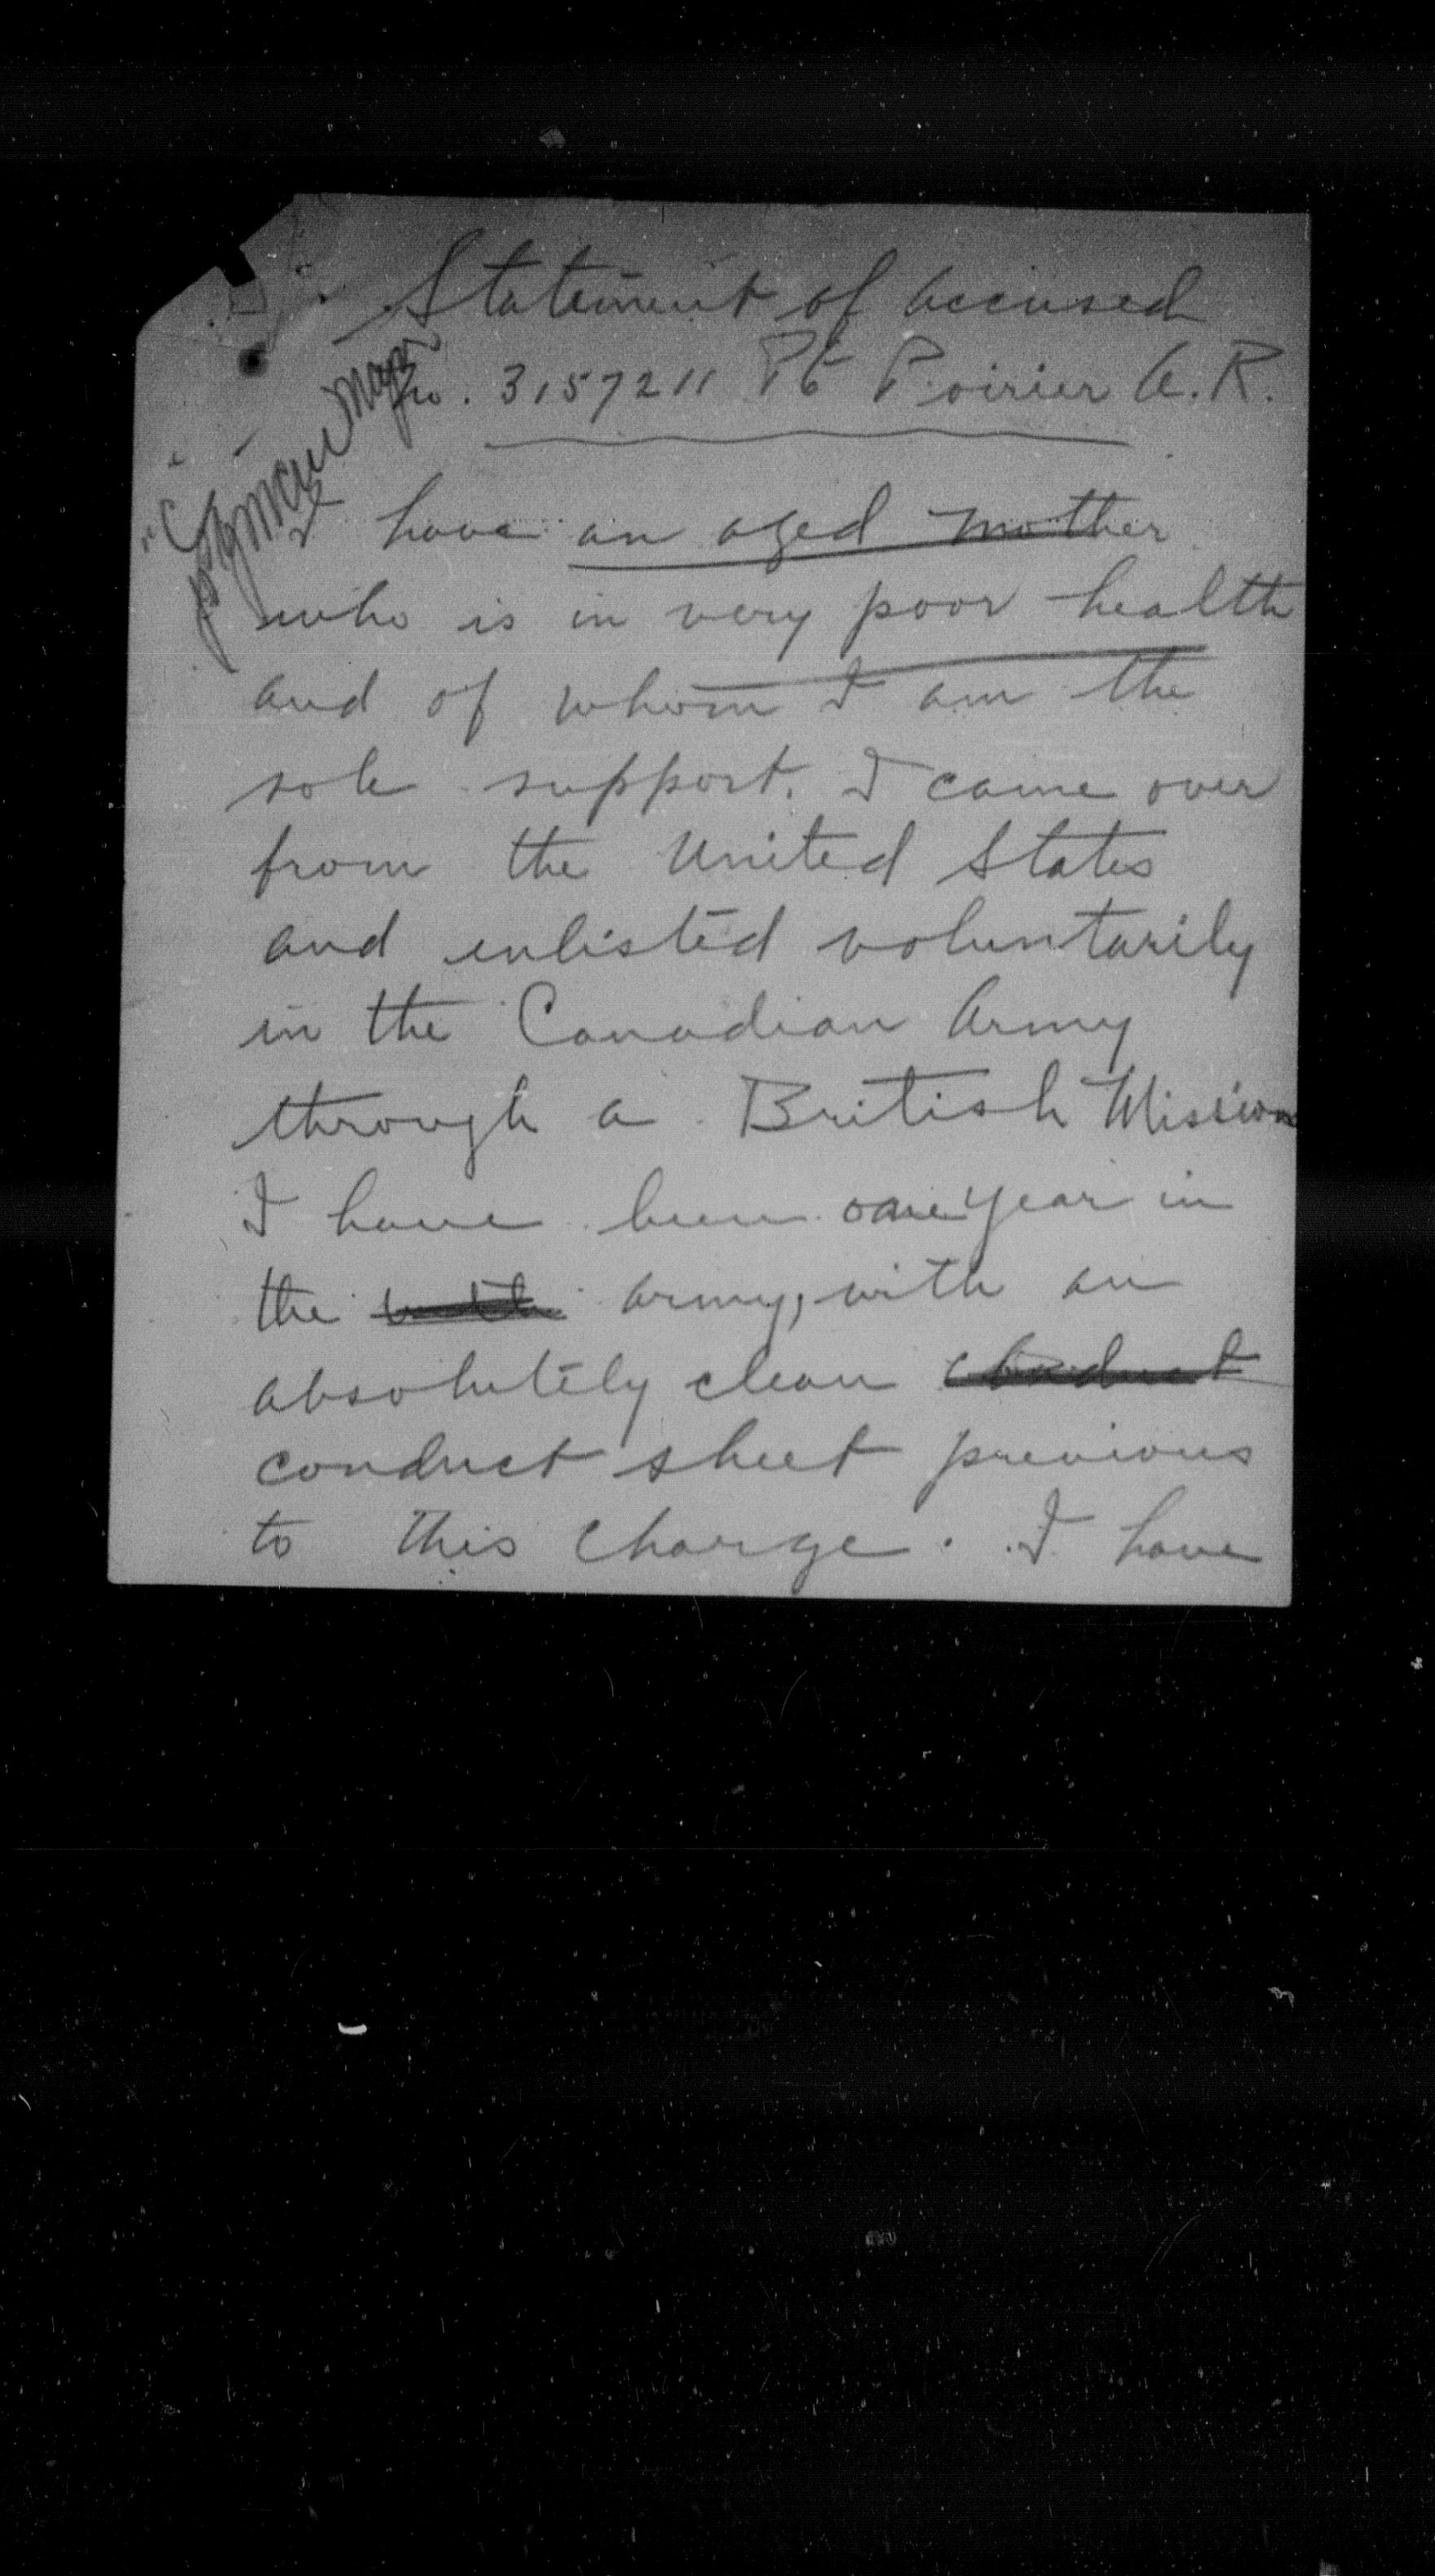 Statement of accused
No. 3157211 Pt Poirier A. R.
"C"
Major
I have an aged mother
who is in very poor health
and of whom I am the
sole support. I came over
from the United States
and enlisted voluntarily
in the Canadian Army
through a British Mission
I have been one year in
the with army, with an
absolutely clean conduct
conduct sheet previous
to this charge. I have